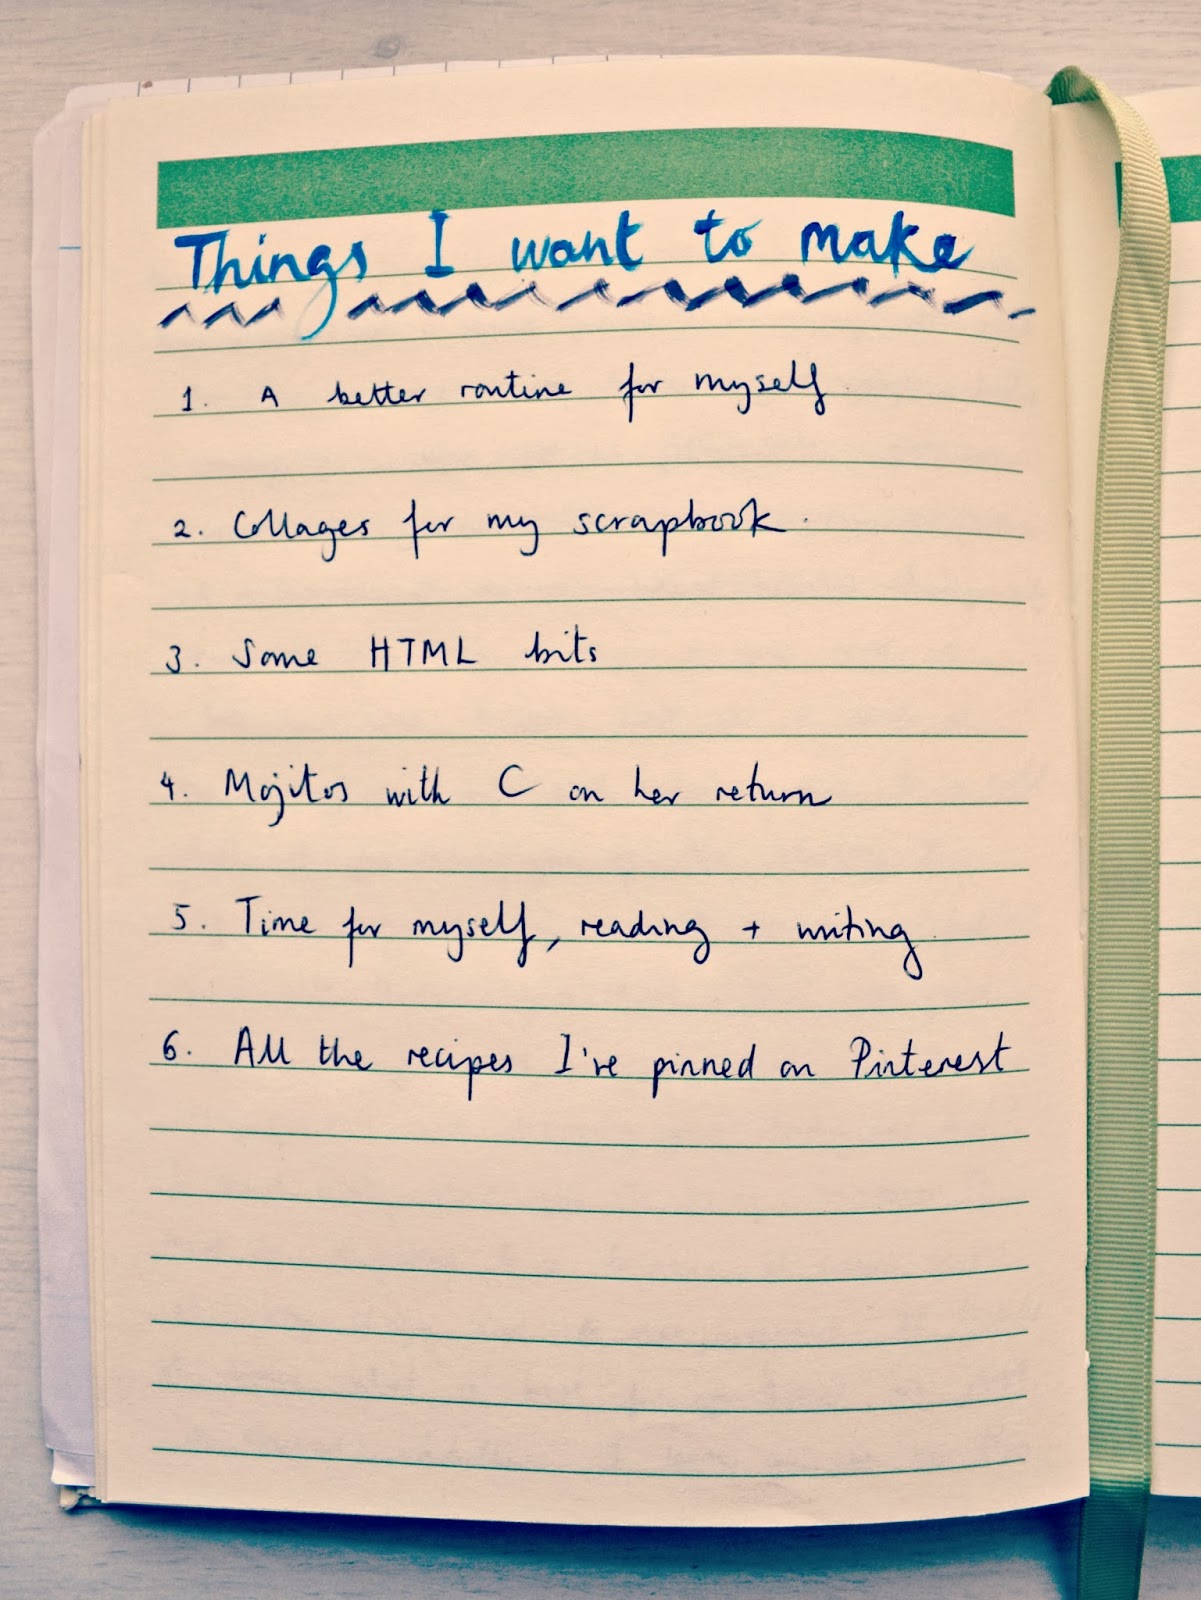 Things I want to make
1. A better routine for myself.
2. Collages for my scrapbook.
3. Some HTML bits
4. Mojitos with C on her return
5. Time for myself, reading + writing.
6. All the recipes I've pinned on Pinterest